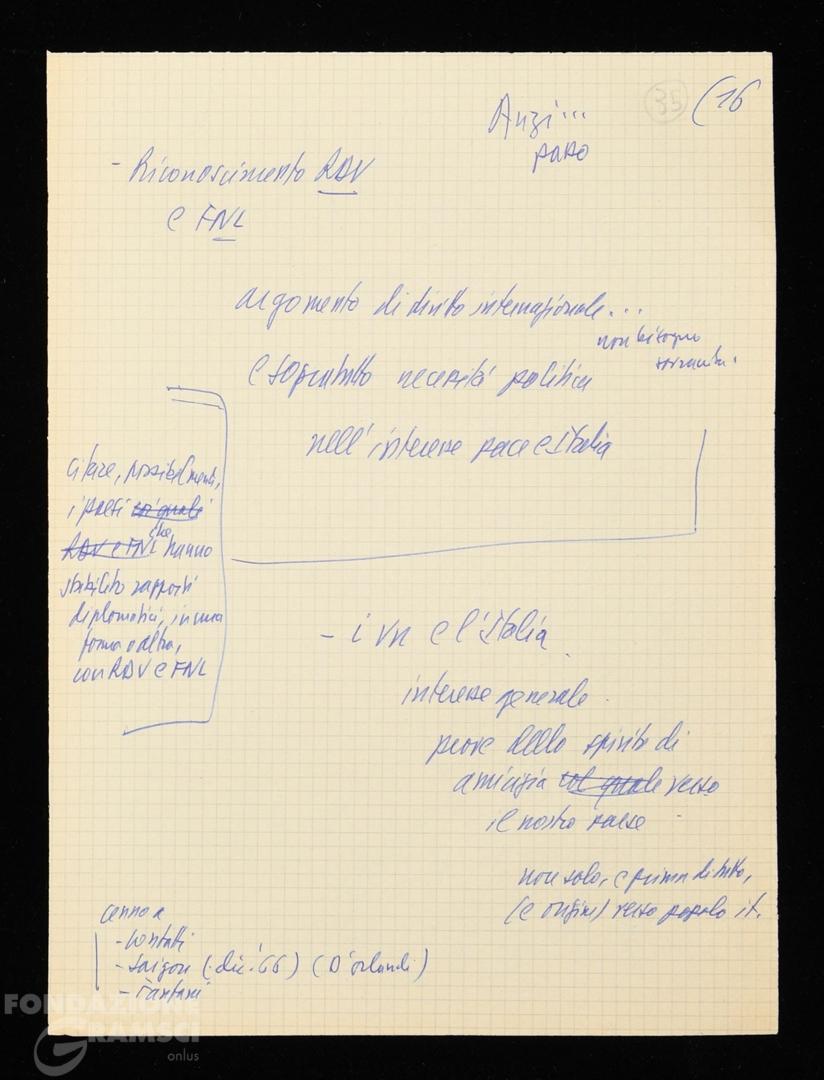 35 (16
Anzi...
- Riconoscimento RDV
e FNL
argomento di diritto internazionale...
non bisogna
e soprattutto necessità politica
nell'interesse pace e Italia
citare, possibilmente,
i paesi coi quali
RDV e FNL che hanno
stabilito rapporti
diplomatici, in una
forma o altra,
con RDV e FNL
- i vn e l'Italia
interesse generale.
prove dello spirito di
amicizia col quale verso
il nostro paese
non solo, e prima di tutto,
(e origine) verso popolo it.
cenno a
- contatti
- Saigon (dic. '66) (D'Orlandi)
- Fanfani
FONDAZIONE
GRAMSCI
onlus